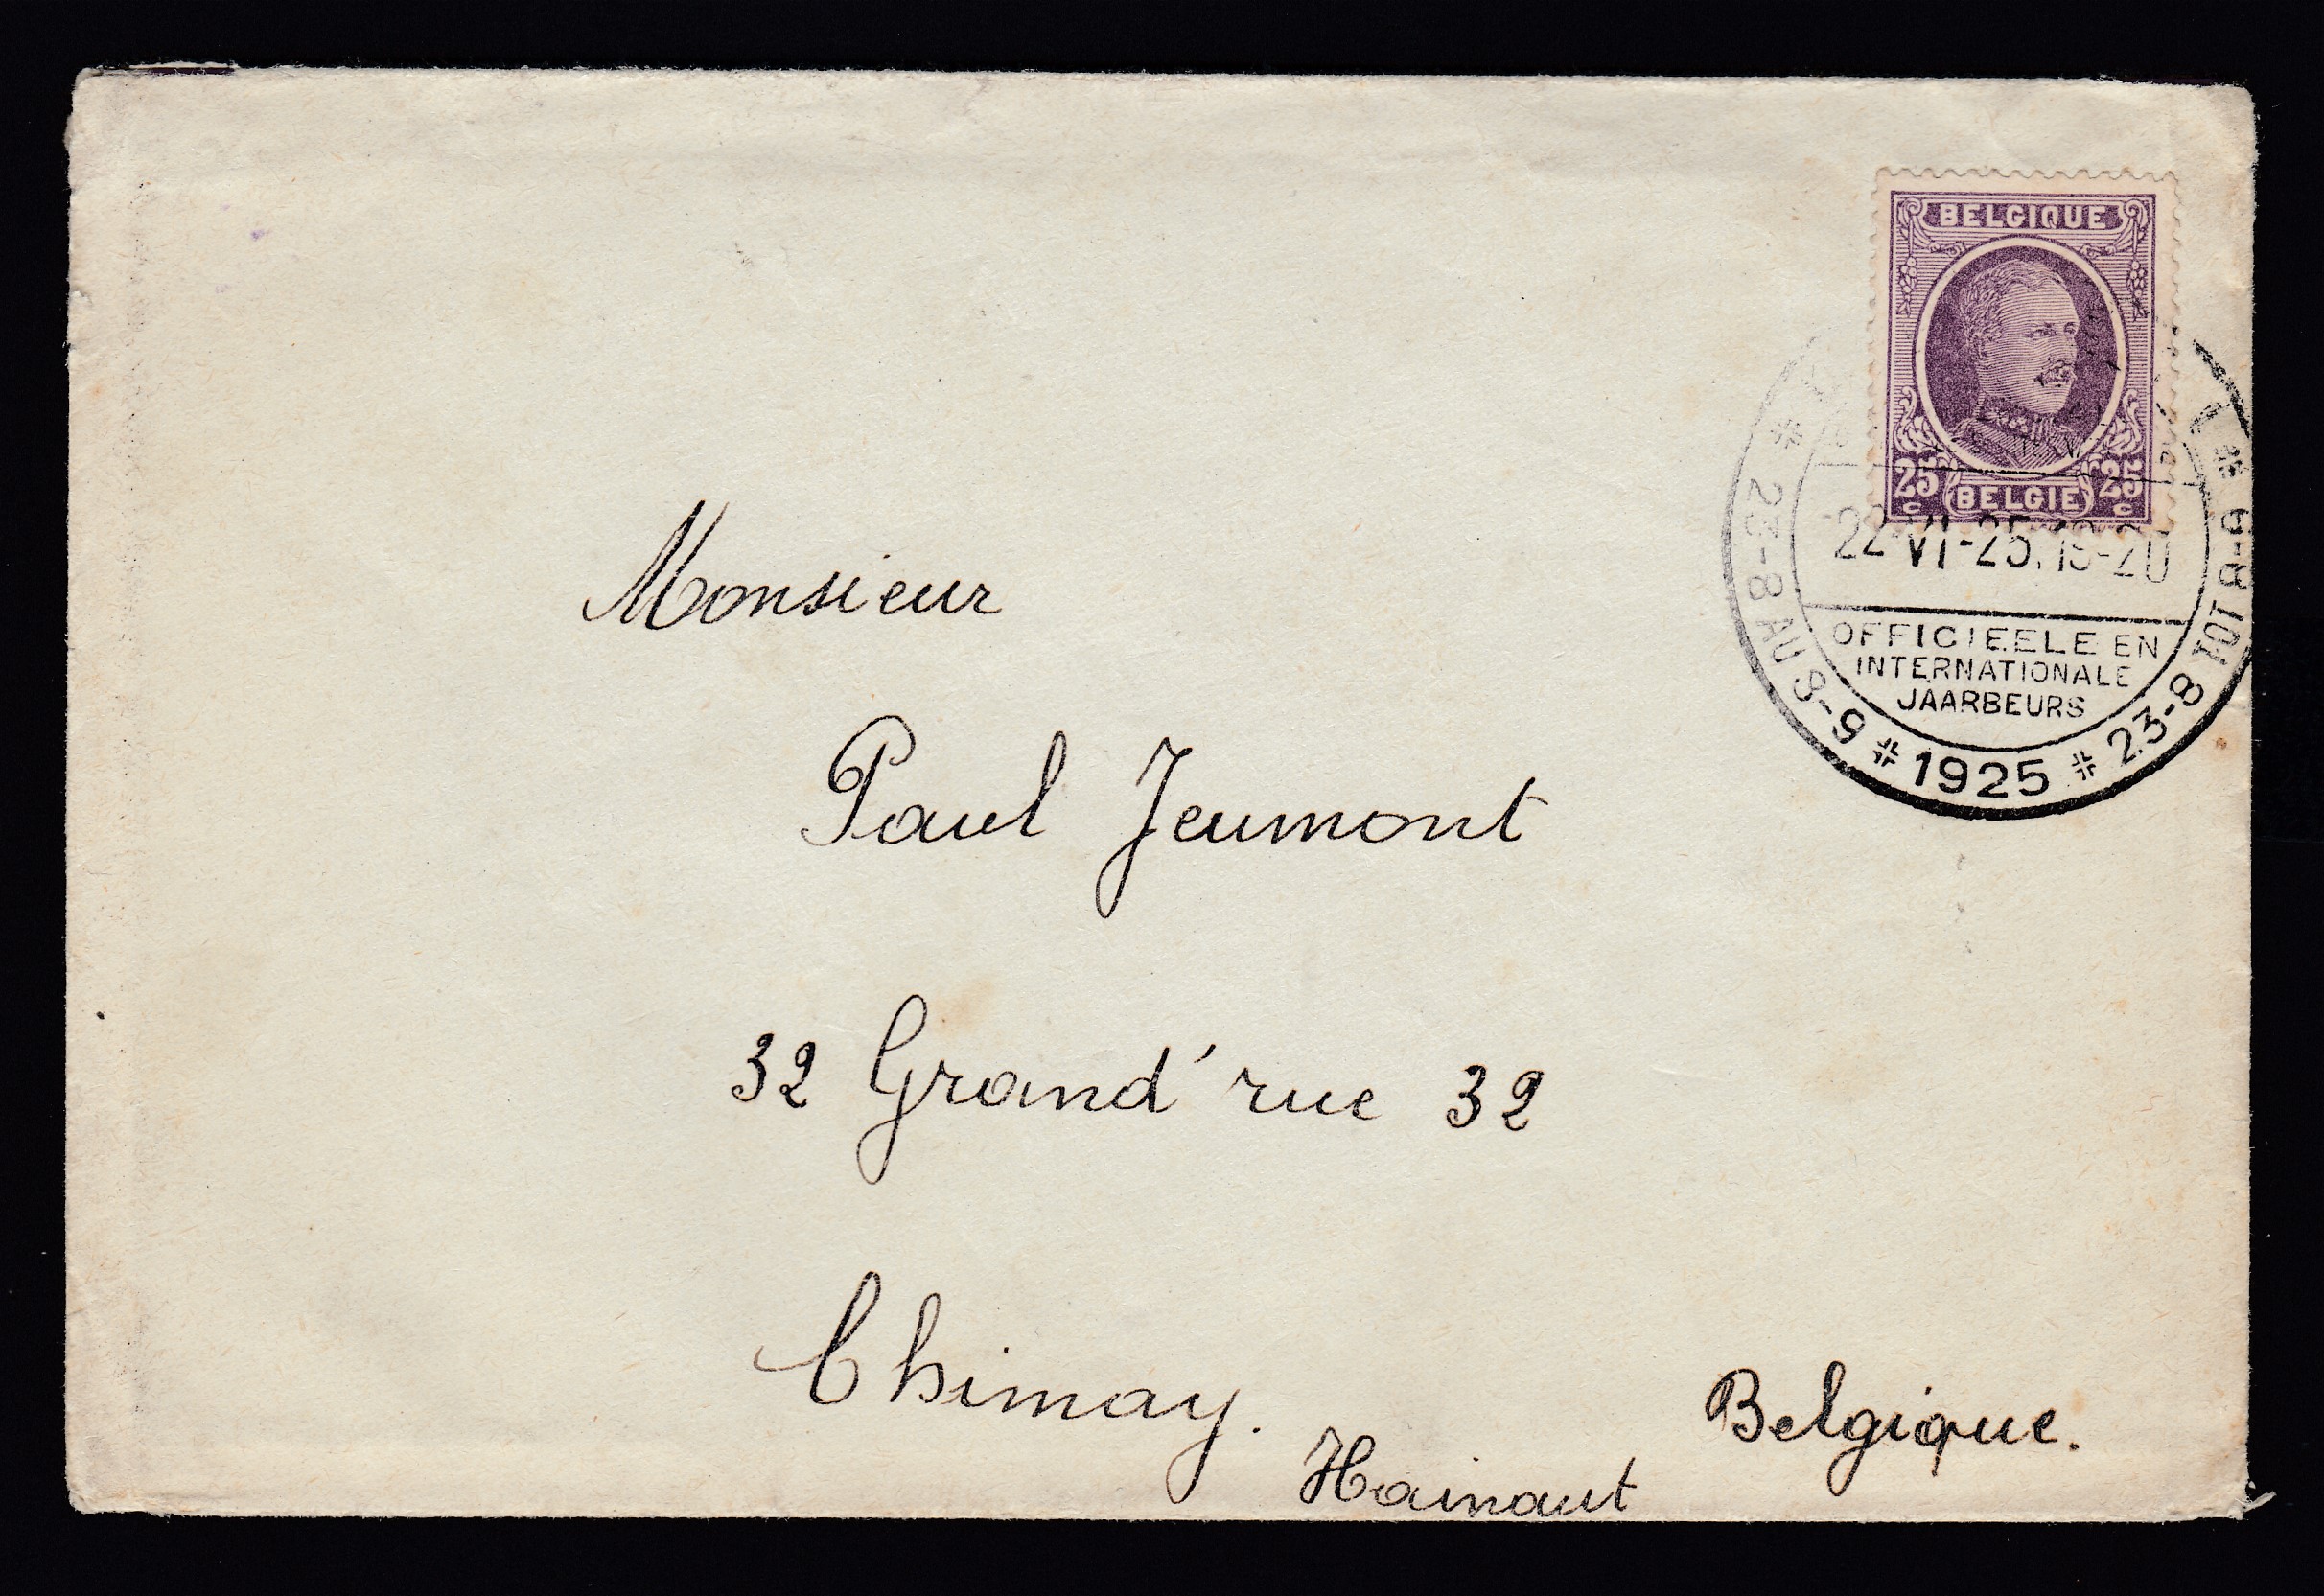 BELGIQUE
25 c BELGIE 25 c
22-VI-25.19-20
OFFICIEELE EN
INTERNATIONALE
JAARBEURS
* 23-8 AU 8-9 * 1925 * 23-8 TOT 8-9 *
Monsieur
Paul Jeumont
32 Grand'rue 32
Chimay.
Hainaut
Belgique.